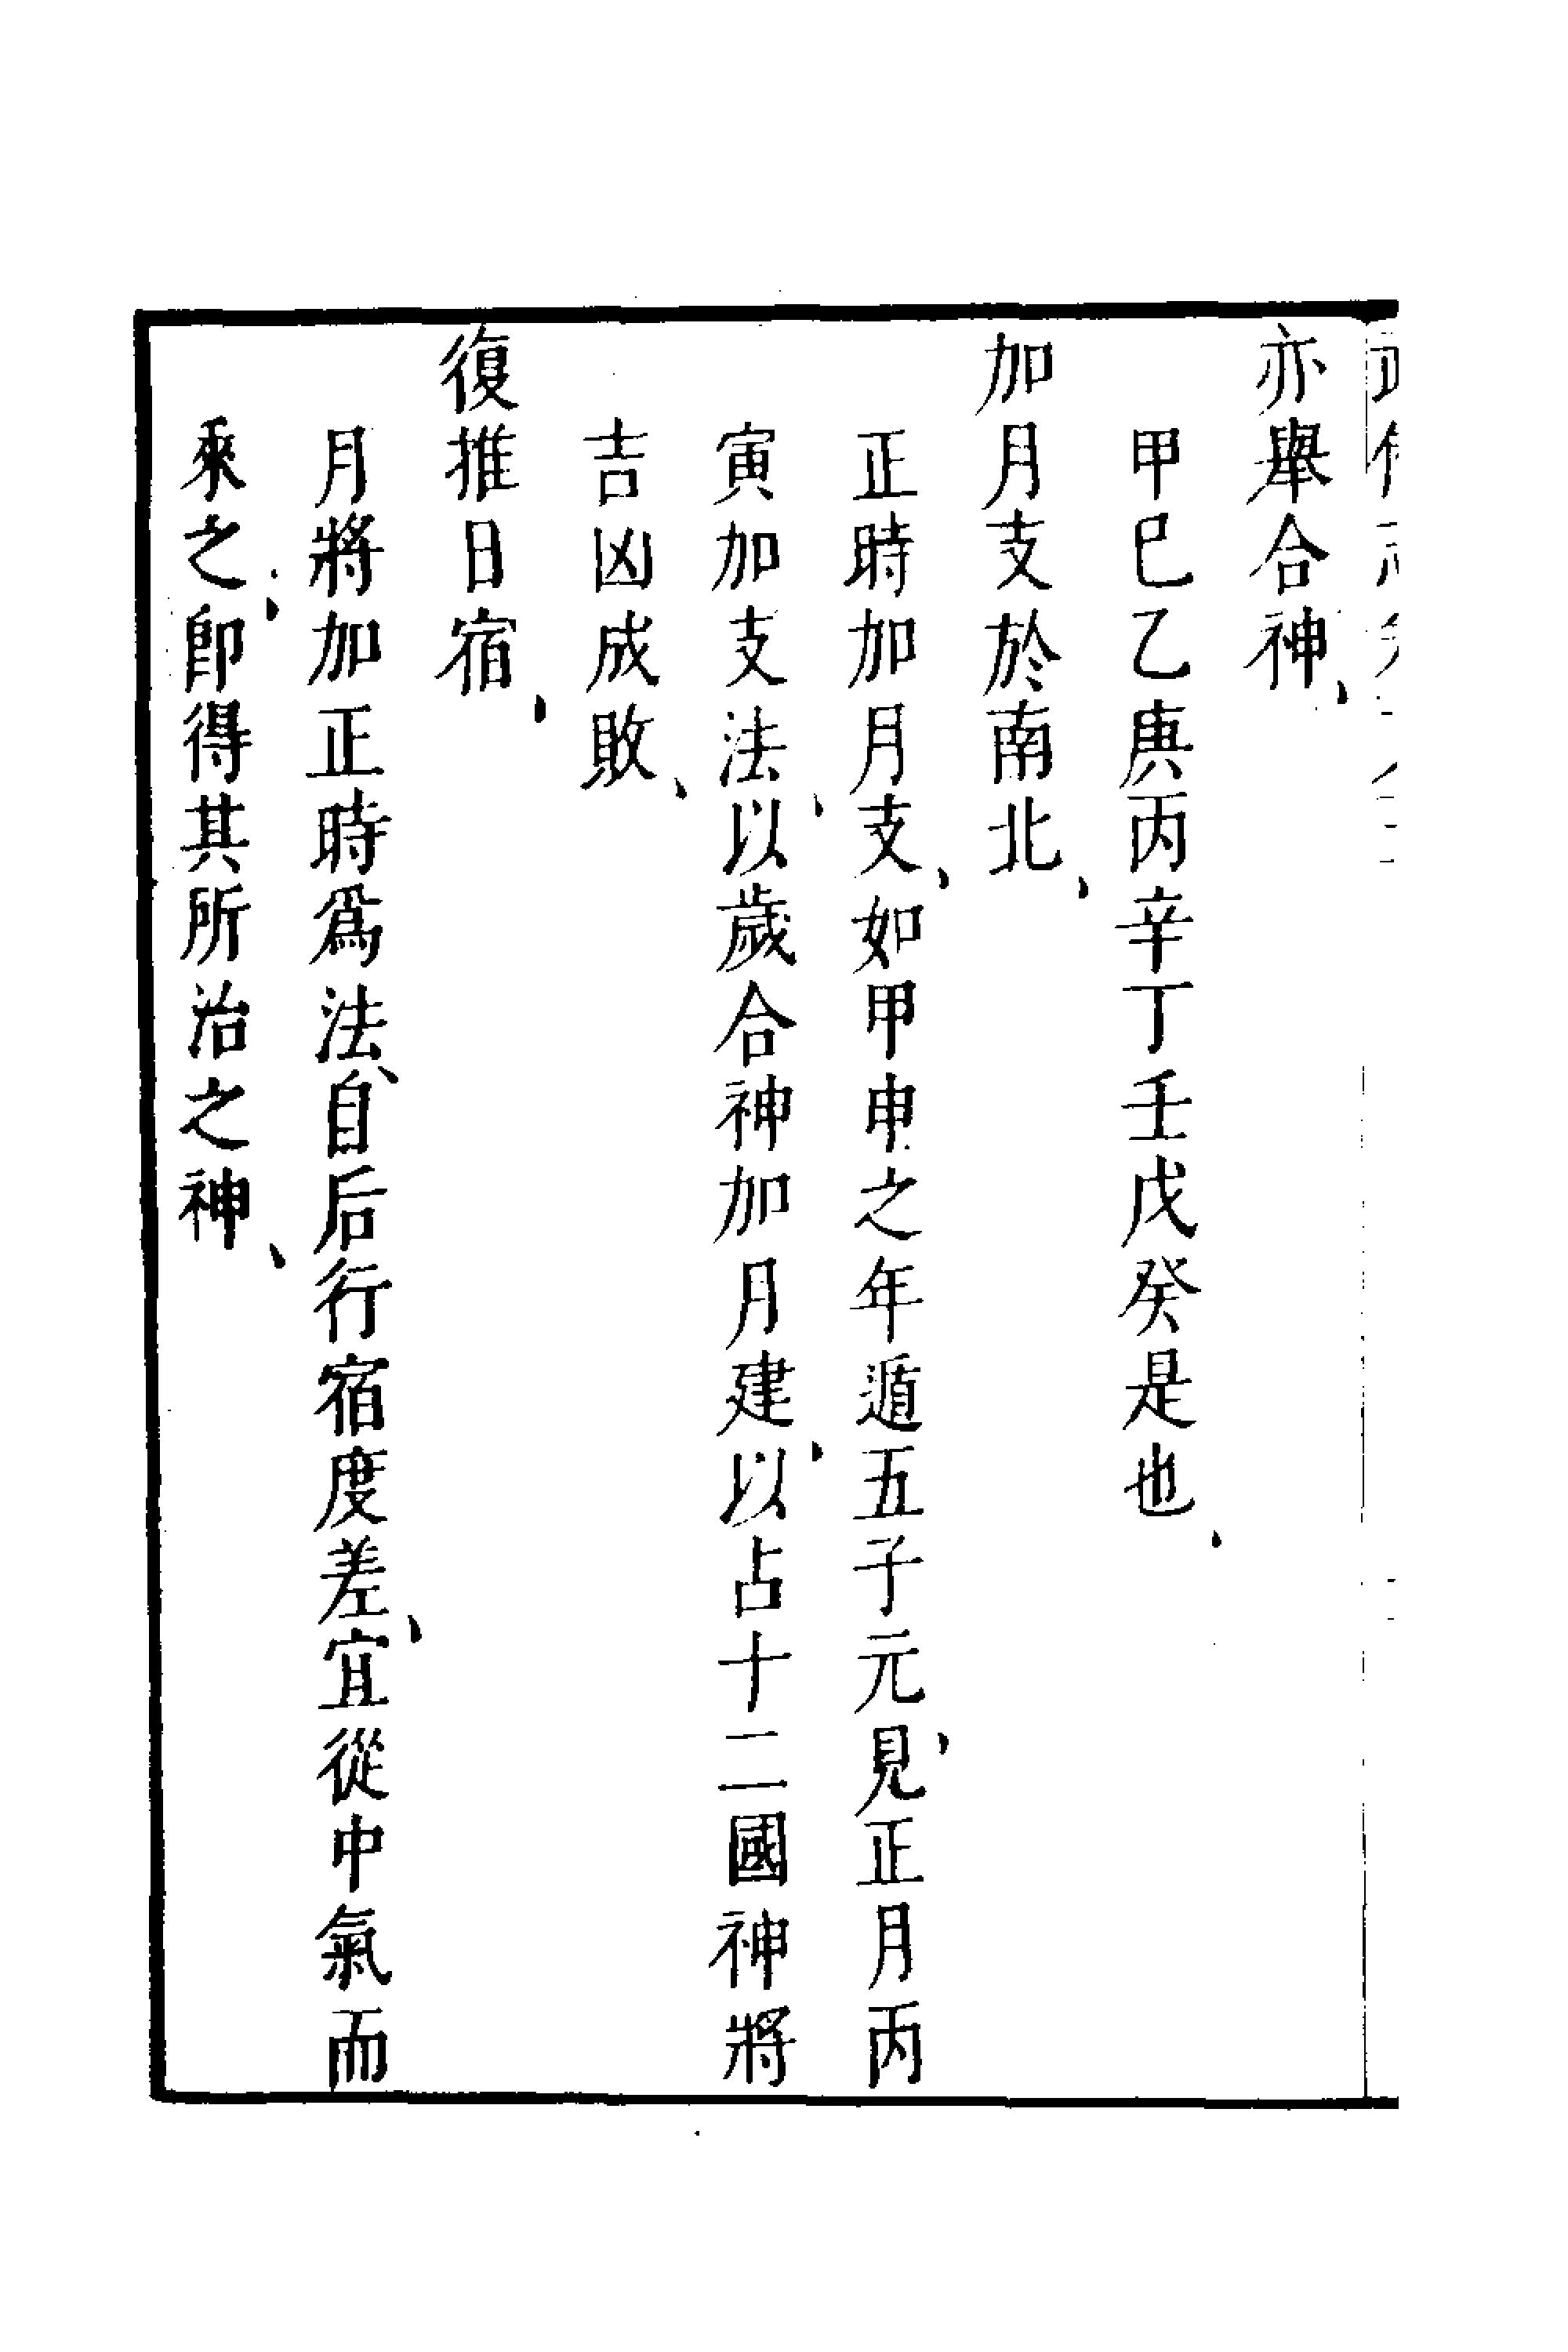 亦舉合神、
甲巳乙庚丙辛丁壬戊癸是也、
加月支於南北、
正時加月支、如甲申之年遁五子元、見正月丙
寅加支法、以歲合神加月建、以占十二國神將
吉凶成敗、
復推日宿、
月將加正時爲法、自后行宿度差、宜從中氣而
乘之、卽得其所治之神、